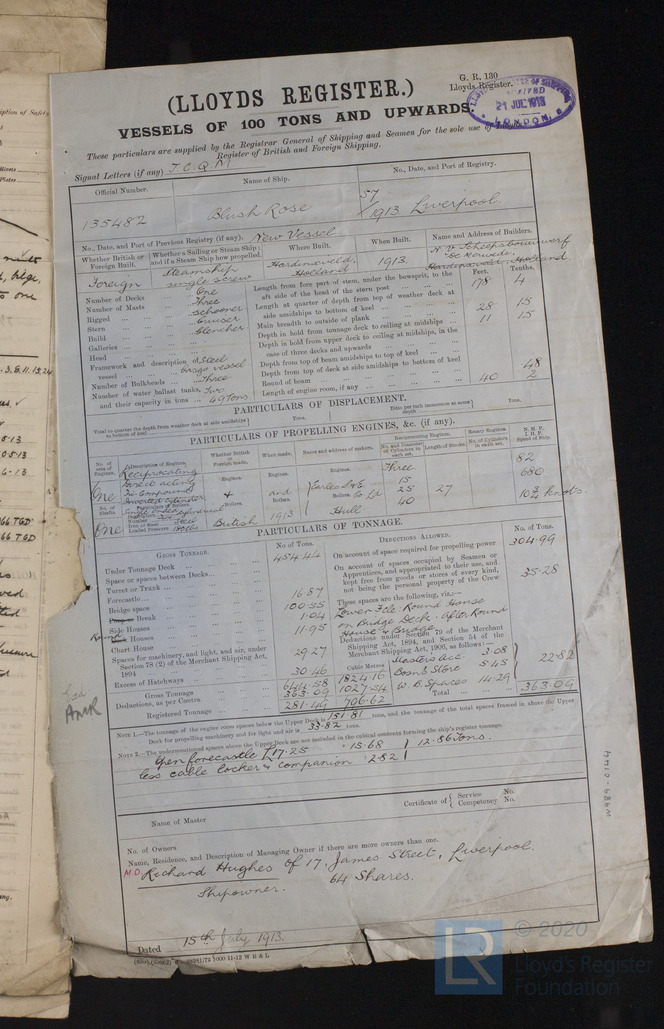 G. R. 130
Lloyds Register.
21 JUL 1913
LONDON
(LLOYDS REGISTER.)
VESSELS OF 100 TONS AND UPWARDS.
These particulars are supplied by the Registrar General of Shipping and Seamen for the sole use of
Register of British and Foreign Shipping.
Signal Letters (if any) J.C.Q.M
Official Number. Name of Ship. No., Date, and Port of Registry.
135482 Blush Rose 57/1913 Liverpool
No., Date, and Port of Previous Registry (if any). New Vessel
Whether British or Foreign Built. Whether a Sailing or Steam Ship; and if a Steam Ship how propelled. Where Built. When Built. Name and Address of Builders.
Foreign Steamship single screw Hardinxveld, Holland 1913.
Number of Decks One
Number of Masts Three
Rigged schooner
Stern
Build Clencher
Galleries
Head
Framework and description of vessel Steel
Number of Bulkheads Three
Number of water ballast tanks, Two
and their capacity in tons 49 tons
Feet. Tenths.
Length from fore part of stem, under the bowsprit, to the
aft side of the head of the stern post 178 4
Length at quarter of depth from top of weather deck at
side amidships to bottom of keel
Main breadth to outside of plank 28 15
Depth in hold from tonnage deck to ceiling at midships 11 15
Depth in hold from upper deck to ceiling at midships, in the
case of three decks and upwards
Depth from top of beam amidships to top of keel
Depth from top of deck at side amidships to bottom of keel
Round of beam 48
Length of engine room, if any 40 2
PARTICULARS OF DISPLACEMENT.
Total to quarter the depth from weather deck at side amidships to bottom of keel Tons.
Ditto per inch immersion at same depth Tons.
PARTICULARS OF PROPELLING ENGINES, &c. (if any).
No. of sets of Engines. Description of Engines. Whether British or Foreign made. When made. Name and address of makers. Reciprocating Engines. Rotary Engines. N.H.P. I.H.P. Speed of Ship.
One Reciprocating Direct acting Tri Compound Inverted cylinder
No. of Shafts. Particulars of Boilers.
One
Number
Iron or Steel Steel
Loaded Pressure
Engines. & Boilers. British
Engines. and Boilers. 1913
Engines. Earles S & E Boilers. Co Ld Hull
Three
15
25
40
27
82
680
10¾ knots.
PARTICULARS OF TONNAGE.
GROSS TONNAGE. No. of Tons.
Under Tonnage Deck 454.44
Space or spaces between Decks
Turret or Trunk
Forecastle 16.87
Bridge space 100.55
Break 1.04
Side Houses
Round Houses 11.95
Chart House
Spaces for machinery, and light, and air, under
Section 78 (2) of the Merchant Shipping Act,
1894 29.27
Excess of Hatchways 30.46
Gross Tonnage 644.58 1824.16
Deductions, as per Contra 363.09 1027.54
Registered Tonnage 281.49 796.62
Cubic Metres
DEDUCTIONS ALLOWED. No. of Tons.
On account of space required for propelling power 304.99
On account of spaces occupied by Seamen or
Apprentices, and appropriated to their use, and
kept free from goods or stores of every kind,
not being the personal property of the Crew 35.28
These spaces are the following, viz.:—
Lower Fcle: Round House
on Bridge Deck. After Round
House & Bridge.
Deductions under Section 79 of the Merchant
Shipping Act, 1894, and Section 54 of the
Merchant Shipping Act, 1906, as follows:
Masters Acc. 3.08
Bosn's Store 5.45
W. B. Spaces 14.29
22.82
Total 363.09
NOTE 1.—The tonnage of the engine room spaces below the Upper Deck is 151.81 tons, and the tonnage of the total spaces framed in above the Upper
Deck for propelling machinery and for light and air is 33.82 tons.
NOTE 2.—The undermentioned spaces above the Upper Deck are not included in the cubical contents forming the ship's register tonnage.
Open forecastle 15.68
less cable locker & companion 2.82
12.86 Tons.
Name of Master Certificate of Service No. Competency No.
No. of Owners
Name, Residence, and Description of Managing Owner if there are more owners than one.
M.O. Richard Hughes of 17, James Street, Liverpool.
Shipowner. 64 Shares.
Dated 15th July 1913.
W989-0144
LR
© 2020
Lloyd's Register
Foundation